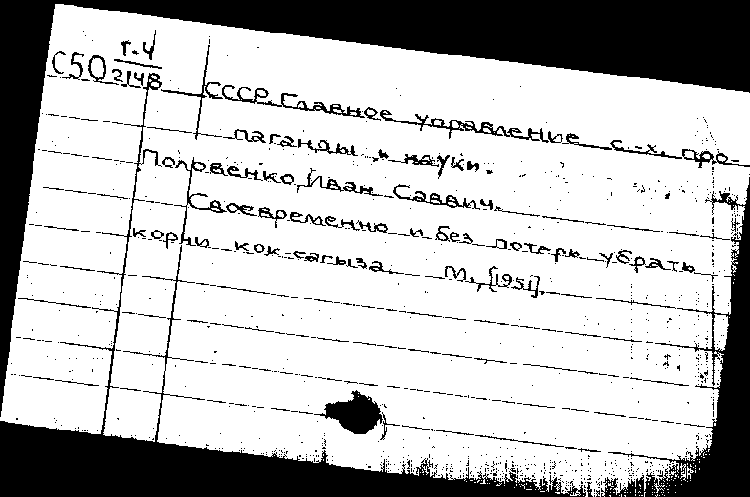 С50 т.4
2148
СССР. Главное управление с.-х. про-
паганды и науки.
Половенко, Иван Саввич.
Своевременно и без потерь убрать
корни кок-сагыза. М., [1951].